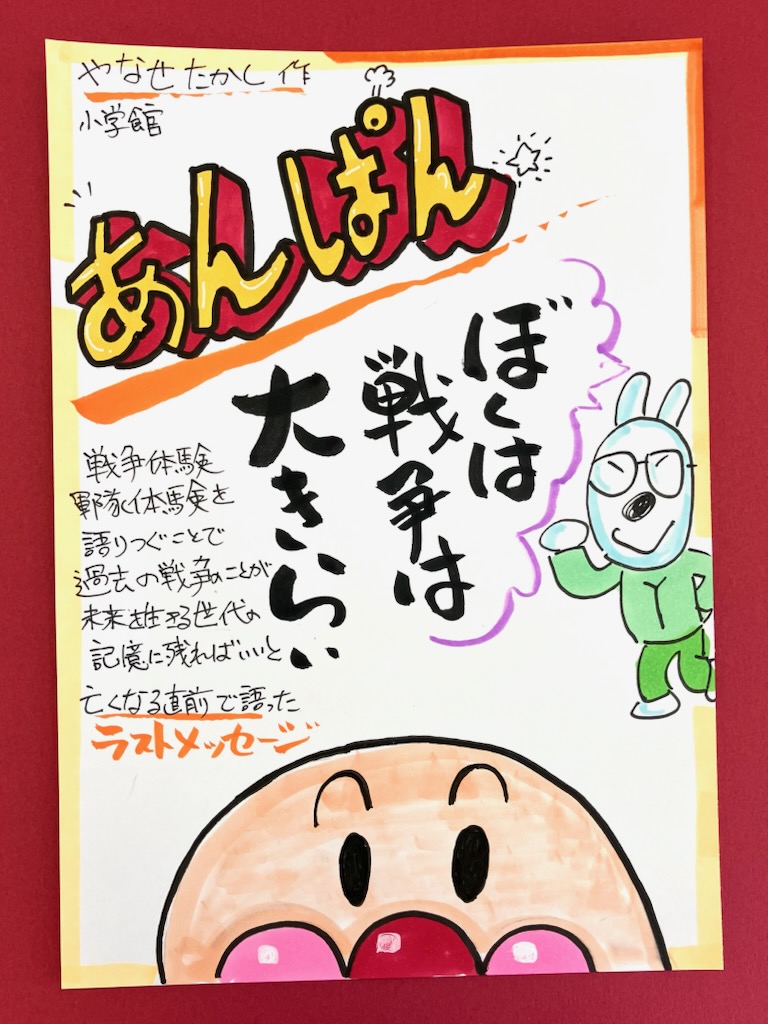 やなせたかし 作
小学館
あんぱん
ぼくは
戦争は
大きらい
戦争体験
軍隊体験を
語りつぐことで
過去の戦争のことが
未来を生きる世代の
記憶に残ればいいと
亡くなる直前で語った
ラストメッセージ